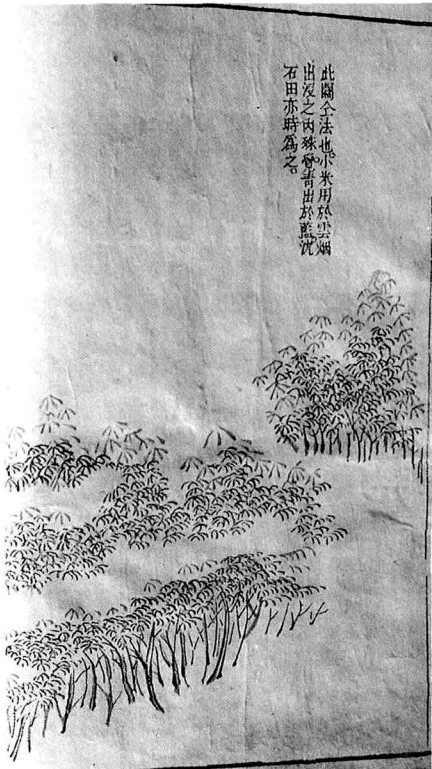 此關仝法也小米用於雲烟
出沒之內殊覺青出於藍沈
石田亦時爲之